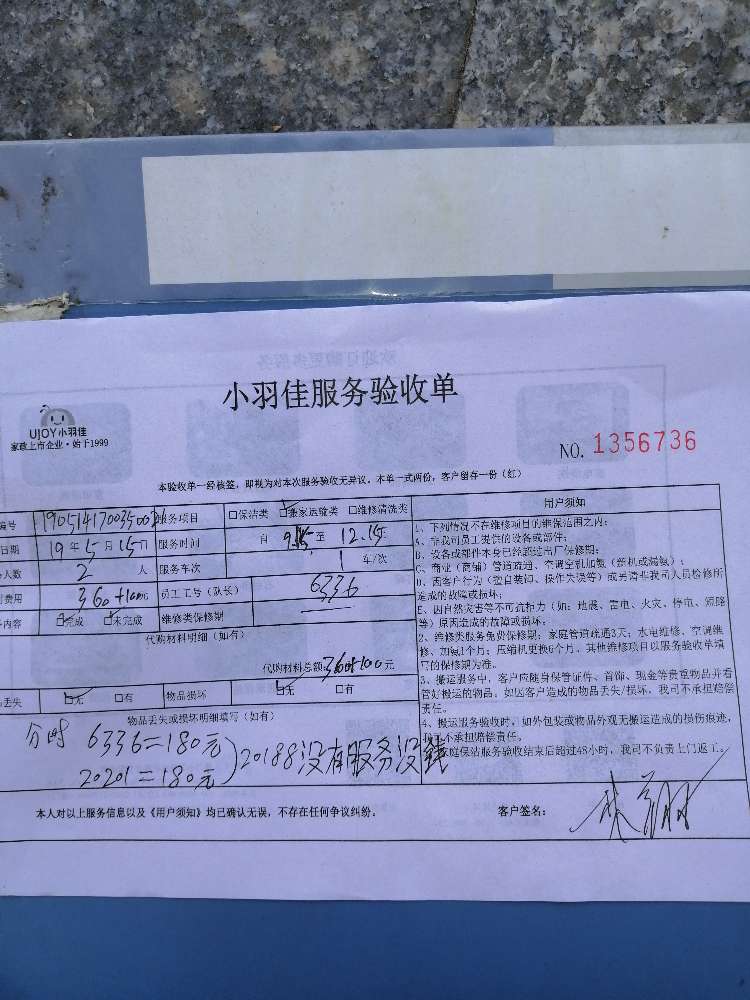 小羽佳服务验收单
UJOY小羽佳
家政上市企业·始于1999
NO. 1356736
本验收单一经核签，即视为对本次服务验收无异议。本单一式两份，客户留存一份（红）
编号 服务项目 □保洁类 搬家运输类 □维修清洗类
日期 19年5月15日 服务时间 自 至 12.15
人数 2 人 服务车次 1 车/次
费用 360+100元 员工工号（队长） 6336
内容 完成 未完成 维修类保修期
代购材料明细（如有）
代购材料总额：360+100元
丢失 无 □有 物品损坏 无 □有
物品丢失或损坏明细填写（如有）
6336=180元
20201=180元
20188没有服务没钱
用户须知
1、下列情况不在维修项目的维保范围之内：
A、非我司员工提供的设备或部件；
B、设备或部件本身已经超过出厂保修期；
C、商业（商铺）管道疏通、空调空机加氨（新机或漏氨）；
D、因客户行为（擅自装卸、操作失误等）或另请非我司人员检修所
造成的故障或损坏；
E、因自然灾害等不可抗拒力（如：地震、雷电、火灾、停电、短路
等）原因造成的故障或损坏；
2、维修类服务免费保修期：家庭管道疏通3天；水电维修、空调维
修、加氨1个月；压缩机更换6个月。其他维修项目以服务验收单填
写的保修期为准。
3、搬运服务中，客户应随身保管证件、首饰、现金等贵重物品并看
管好搬运的物品。如因客户造成的物品丢失/损坏，我司不承担赔偿
责任。
4、搬运服务验收时，如外包装或物品外观无搬运造成的损伤痕迹，
我司不承担赔偿责任。
家庭保洁服务验收结束后超过48小时，我司不负责上门返工。
本人对以上服务信息以及《用户须知》均已确认无误，不存在任何争议纠纷。
客户签名：